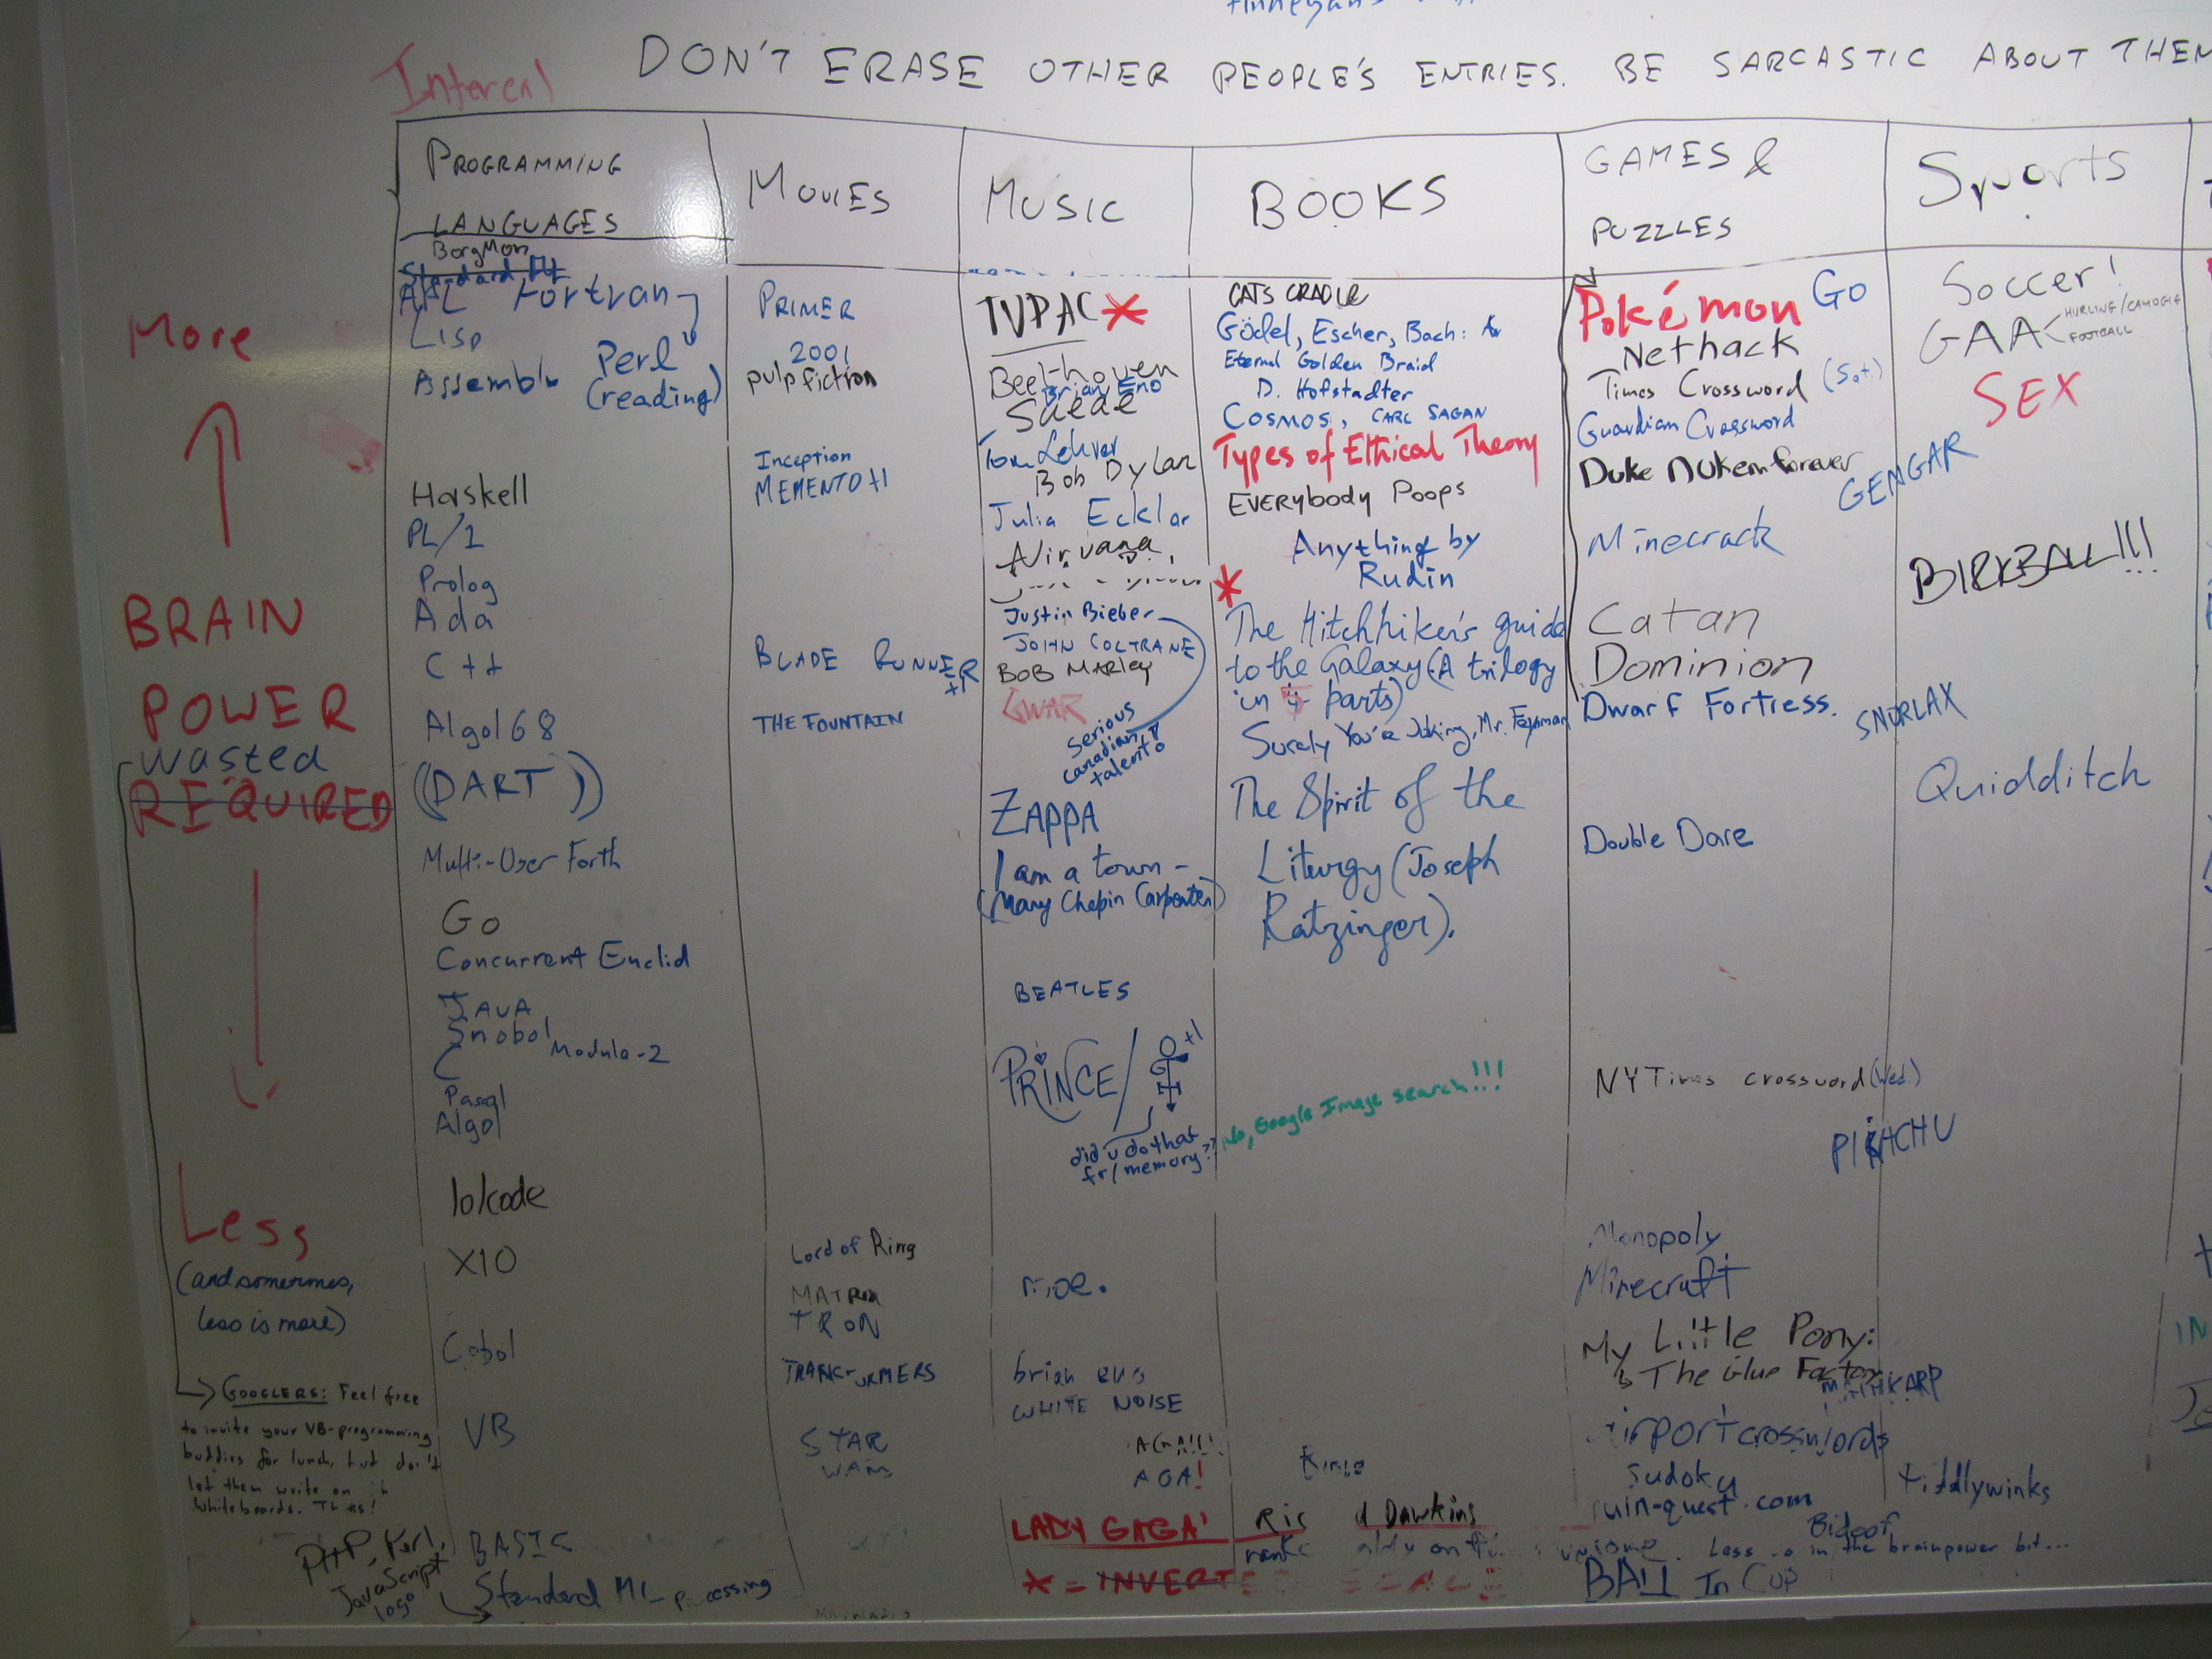 DON'T ERASE OTHER PEOPLE'S ENTRIES. BE SARCASTIC ABOUT THEM
Intercal
More
BRAIN
POWER
wasted
REQUIRED
Less
(and sometimes,
less is more)
GOOGLERS: Feel free
to invite your VB-programming
buddies for lunch, but don't
let them write on
whiteboards.
PHP, Perl,
JavaScript
logo
PROGRAMMING
LANGUAGES
BorgMon
Standard ML
APL Fortran
Lisp
Assembly Perl
(reading)
Haskell
PL/1
Prolog
Ada
C++
Algol 68
(DART))
Multi-User Forth
Go
Concurrent Euclid
JAVA
Snobol Modula-2
C
Pascal
Algol
lolcode
X10
Cobol
VB
BASIC
Standard ML processing
MOVIES
PRIMER
2001
pulp fiction
Inception
MEMENTO +1
BLADE RUNNER
+1
THE FOUNTAIN
Lord of Ring
MATRIX
TRON
TRANSFORMERS
STAR
WARS
MUSIC
TVPAC *
Beethoven
Brian Eno
Tom Lehrer
Bob Dylan
Julia Ecklar
Nirvana
Justin Bieber
JOHN COLTRANE
BOB MARLEY
GWAR
Serious
canadian
talent
ZAPPA
I am a town -
(Mary Chapin Carpenter)
BEATLES
PRINCE/ +1
did u do that
fr/memory??
No, Google Image search!!!
brian eno
WHITE NOISE
AGA!!!
AGA!
LADY GAGA'
* = INVERTED SCALE
BOOKS
CATS CRADLE
Gödel, Escher, Bach: An
Eternal Golden Braid
D. Hofstadter
COSMOS, CARL SAGAN
Types of Ethical Theory
EVERYBODY POOPS
Anything by
Rudin
*
The Hitchhiker's guide
to the Galaxy (A trilogy
in 5 parts)
Surely You're Joking, Mr. Feynman
The Spirit of the
Liturgy (Joseph
Ratzinger).
Dawkins
GAMES &
PUZZLES
Pokémon Go
Nethack
Times Crossword (Sat.)
Guardian Crossword
Duke Nukem forever
GENGAR
Minecrack
Catan
Dominion
Dwarf Fortress.
SNORLAX
Double Dare
NY Times crossword (Wed.)
PIKACHU
Monopoly
Minecraft
My Little Pony:
The Glue Factory
MAGIKARP
airport crosswords
sudoku
ruin-quest.com
Bidoof
Less so in the brainpower bit...
BALL In CUP
Sports
Soccer!
GAA HURLING/CAMOGIE
FOOTBALL
SEX
BIRKBALL!!!
Quidditch
tiddlywinks